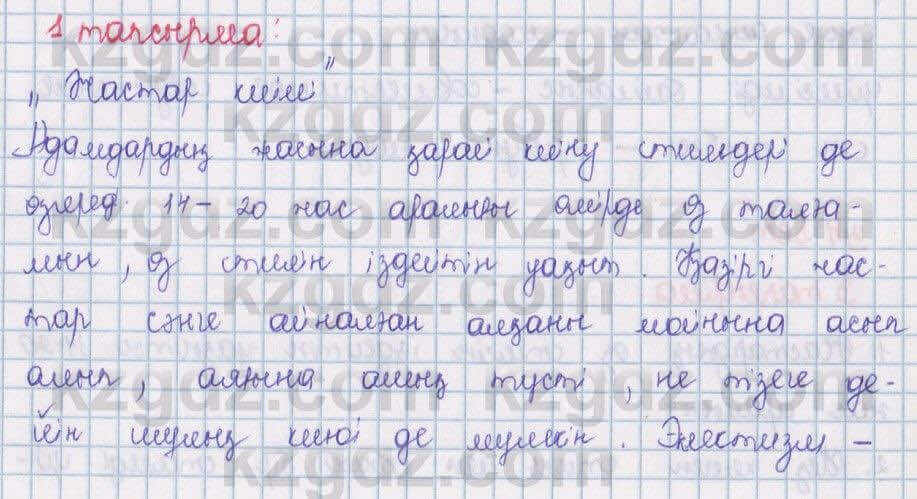 1 тапсырма:
„Жастар киімі”
Адамдардың жасына қарай киіну стильдері де
өзгеред. 14-20 жас аралығы өмірде өз талға-
мын, өз стилін іздейтін уақыт. Қазіргі жас-
тар сәнге айналған алқаны мойнына асып
алып, аяғына ашық түсті, не тізеге де-
йін шұлық киюі де мүмкін. Эклектизм -
kzgdz.com